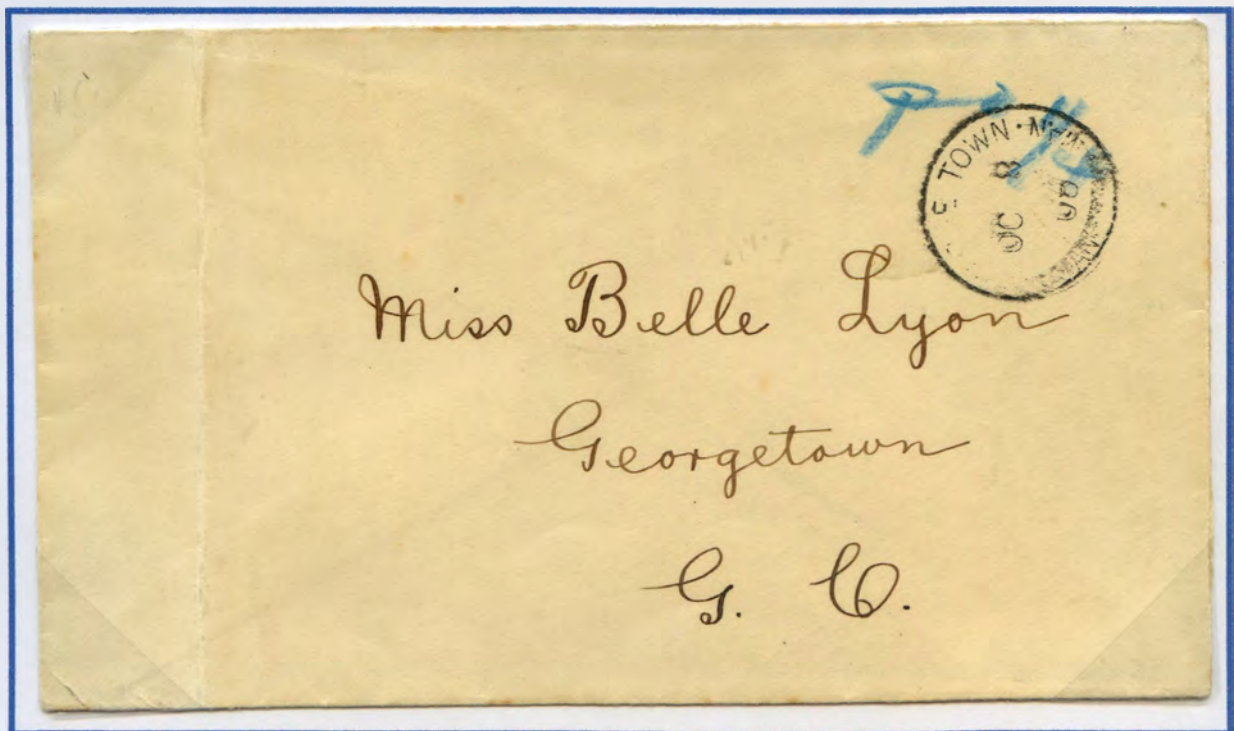 TOWN
OC 8
08
Miss Belle Lyon
Georgetown
G. C.